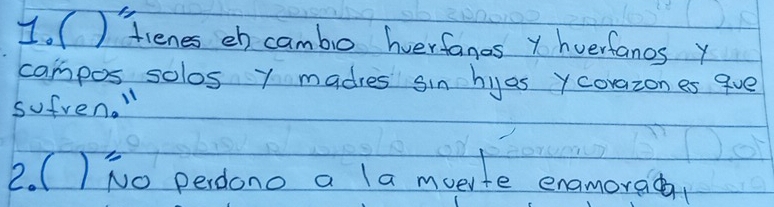 1. ( ) "tienes en cambio huerfanas y huerfanos y
campos solos y madres sin hijas y corazones que
sufren."
2. ( ) "No perdono a la muerte enamorada,